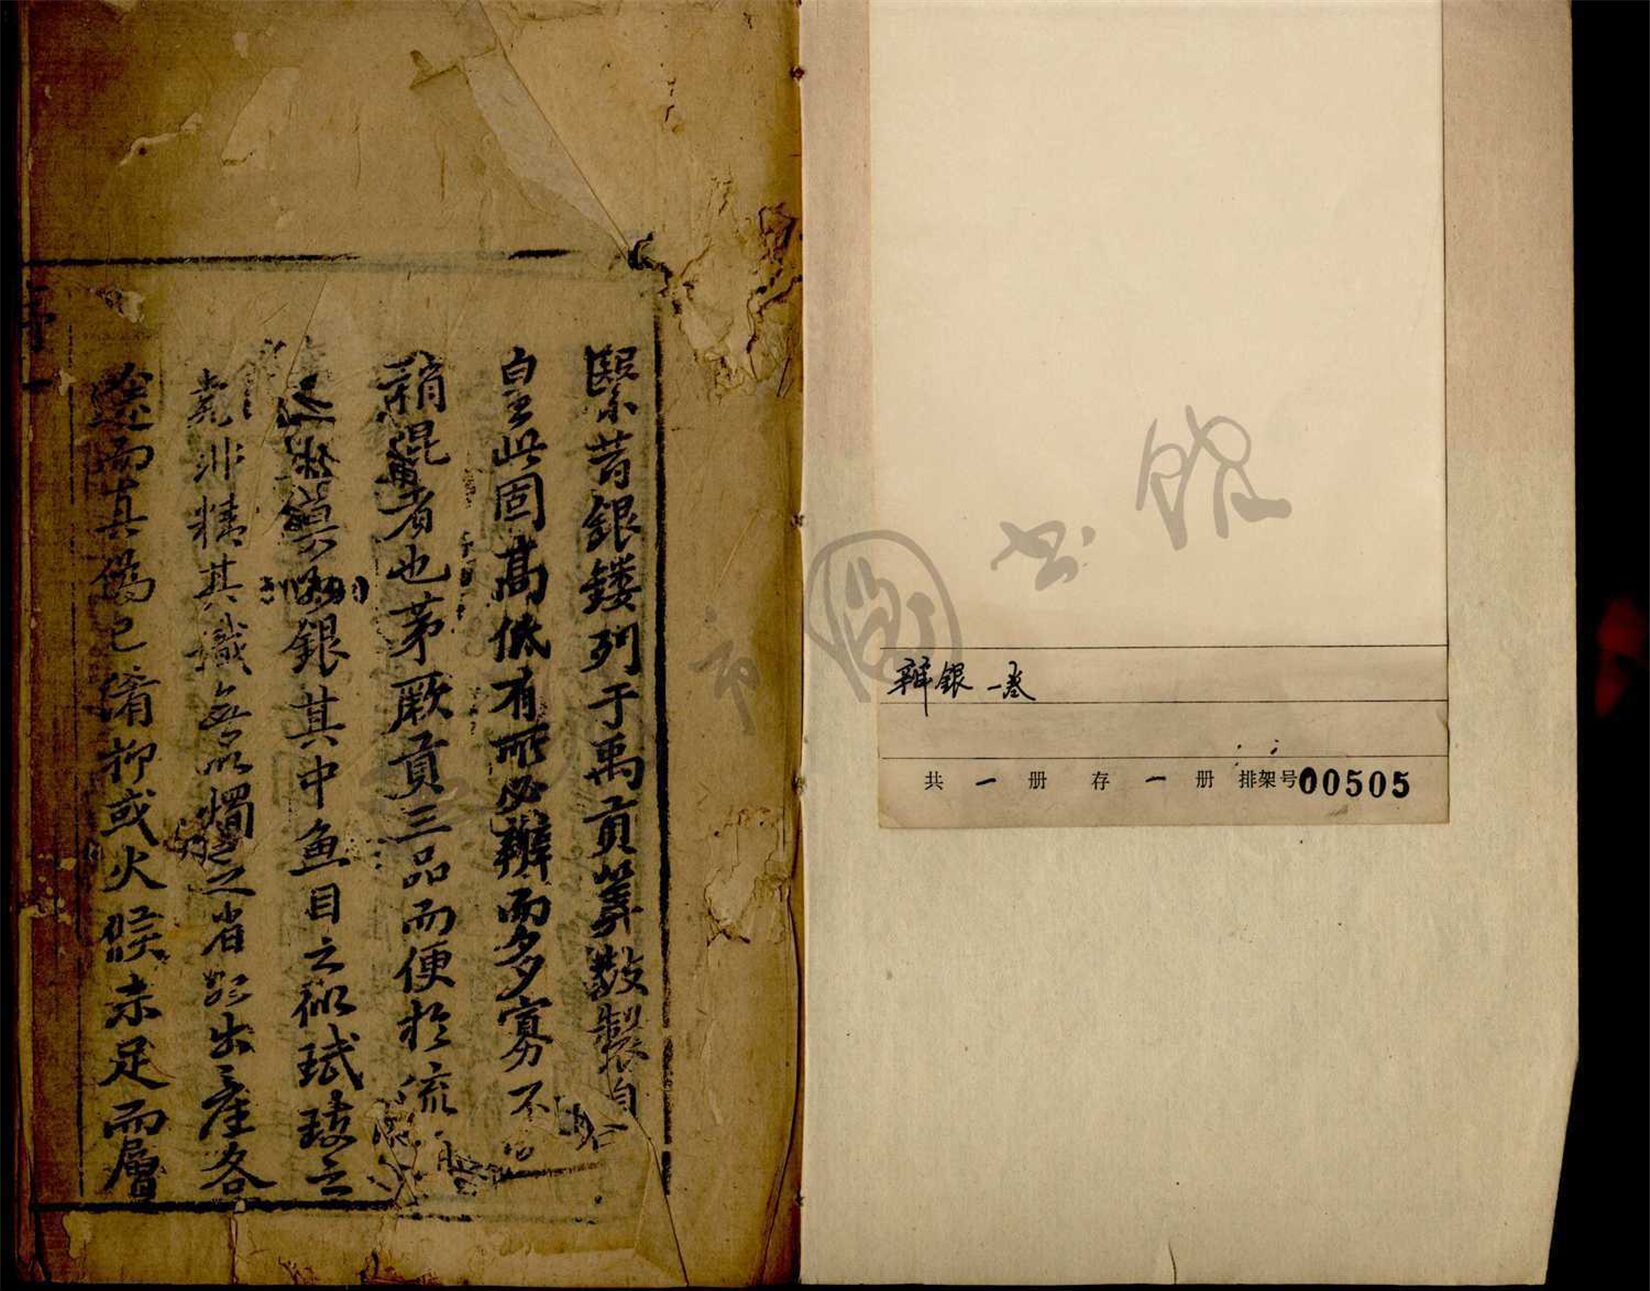 緊昔銀鏤列于禹貢筭數製自
皇王此固髙低有所必辨而多寡不
稍混者也茅厥貢三品而便於流
之銀其中魚目之似珷珷之
非精其識無以燭之省郡出產各
途而真偽已淆抑或火候未足而層
序
辨銀 一卷
共 一 册 存 一 册 排架号00505